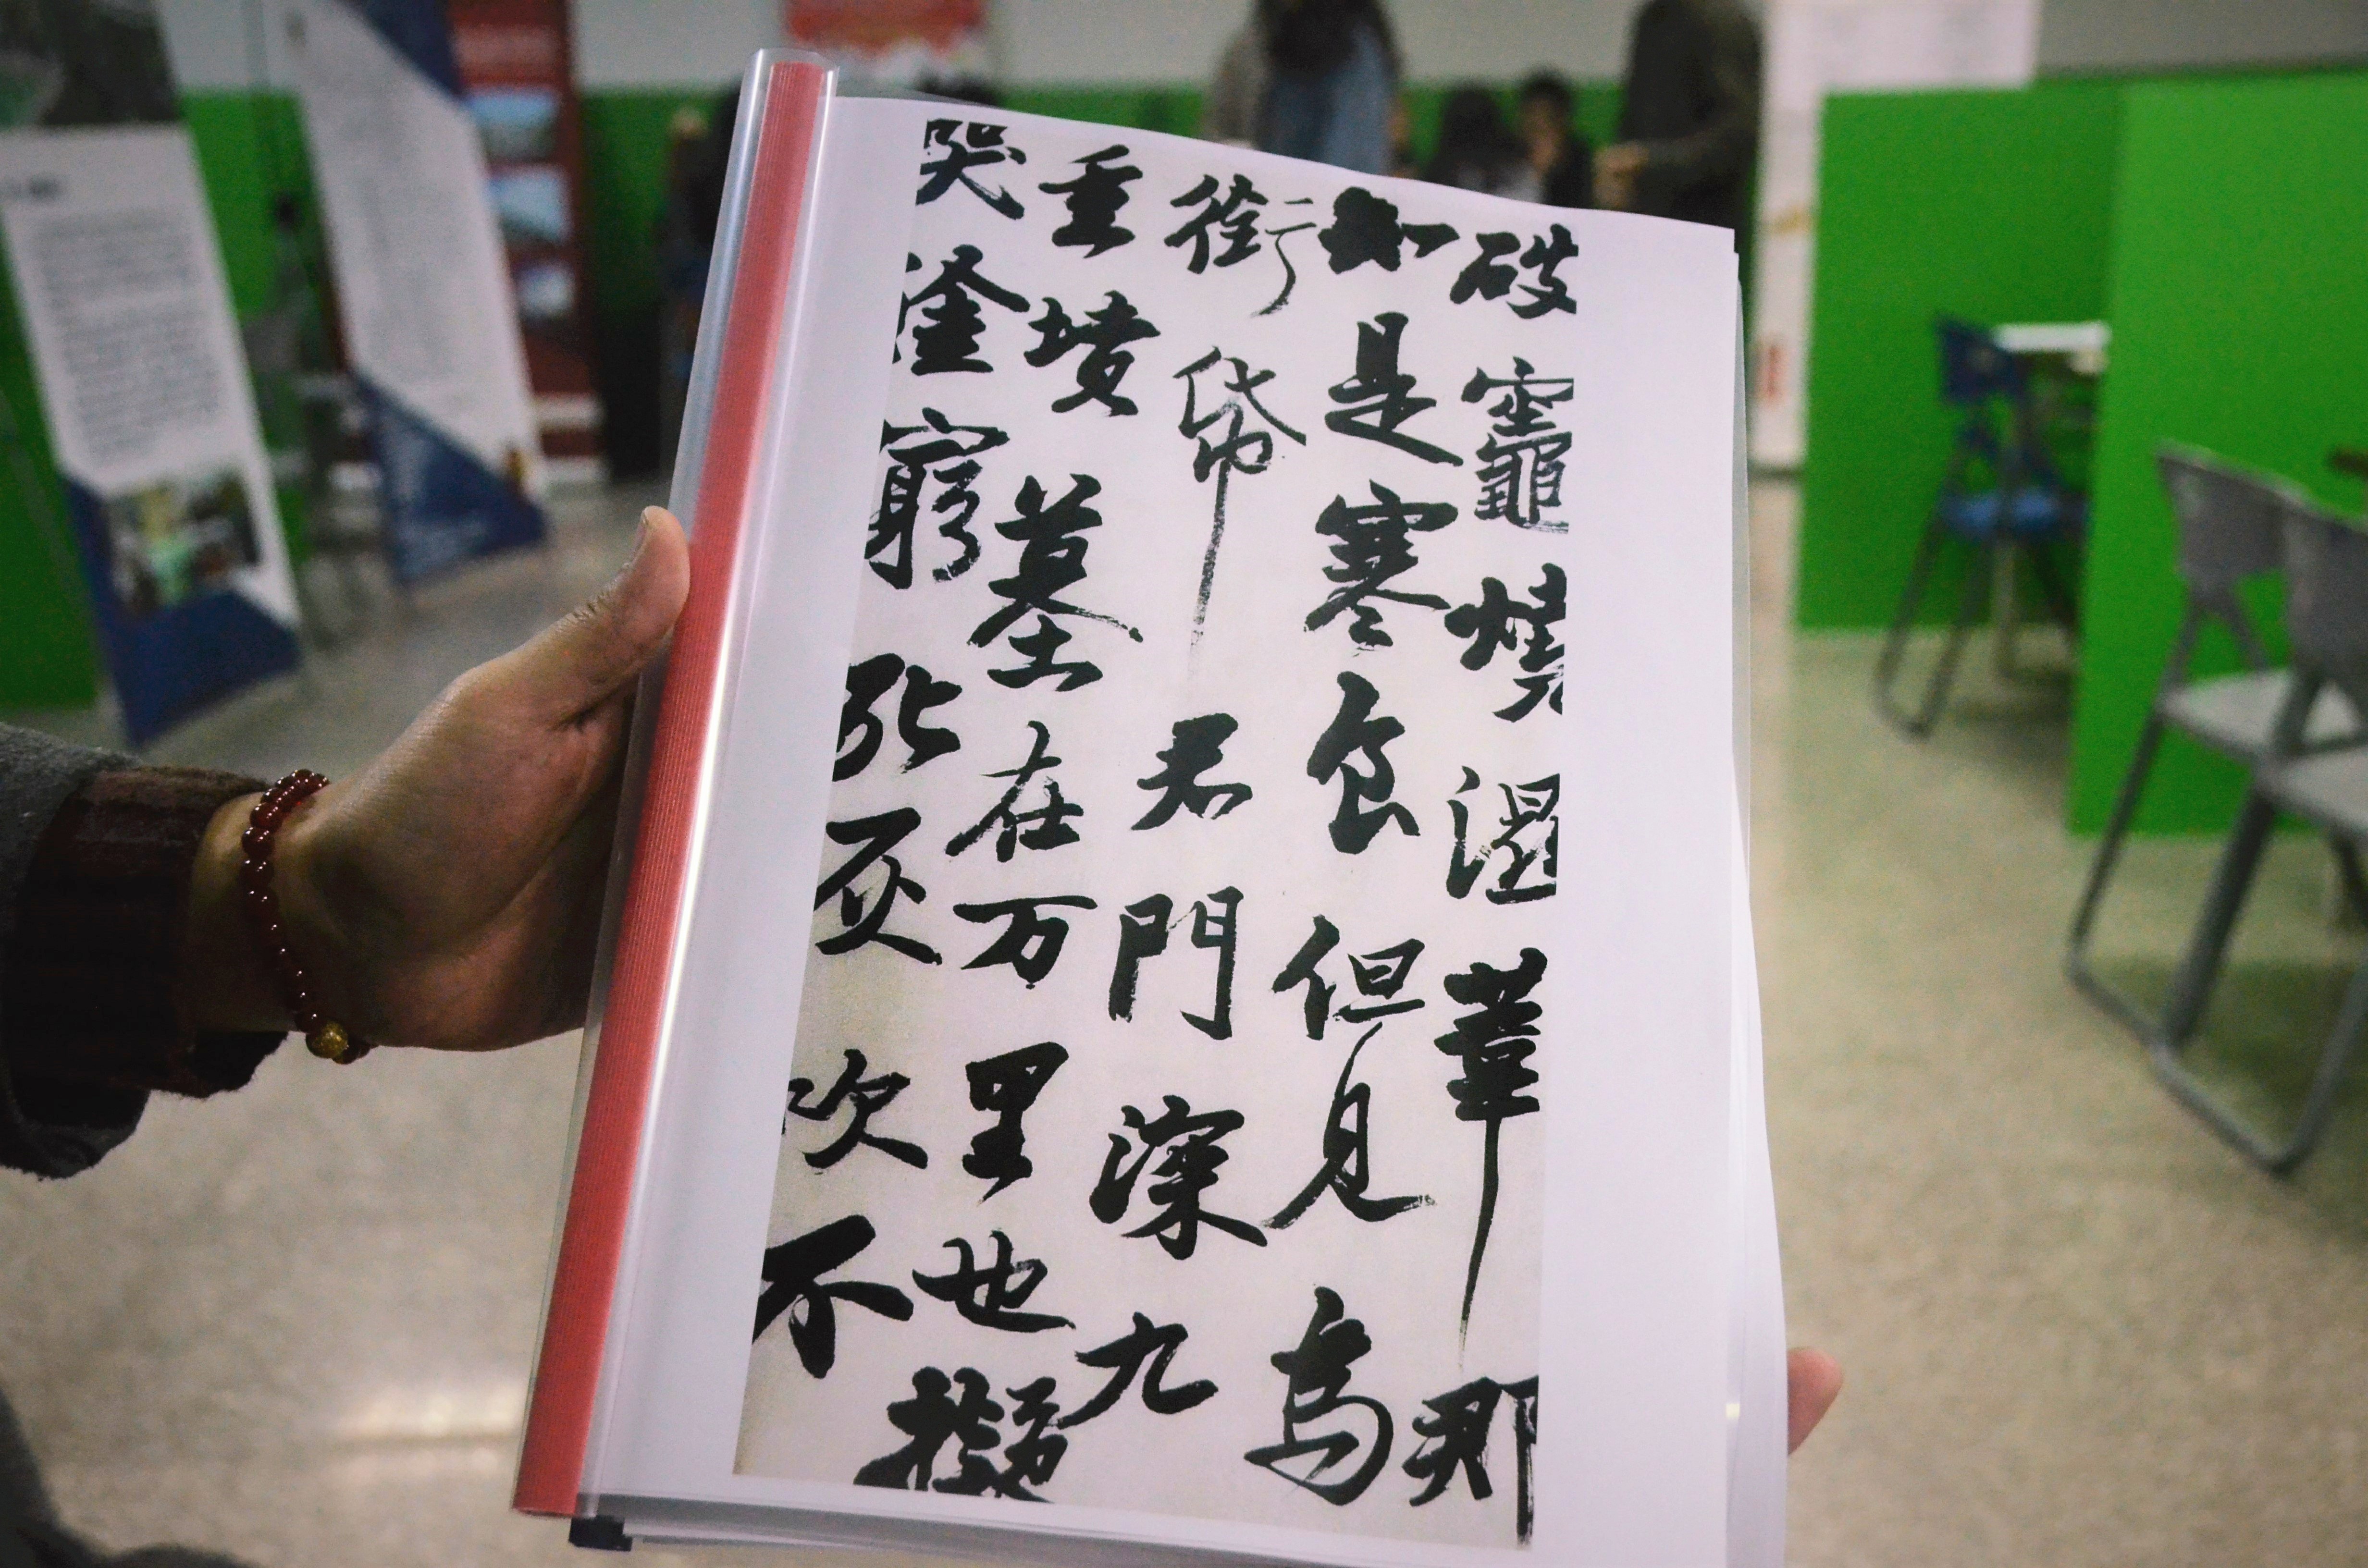 破竈燒濕葦那
知是寒食但見烏
銜帋君門深九
重墳墓在万里也擬
哭塗窮死灰吹不